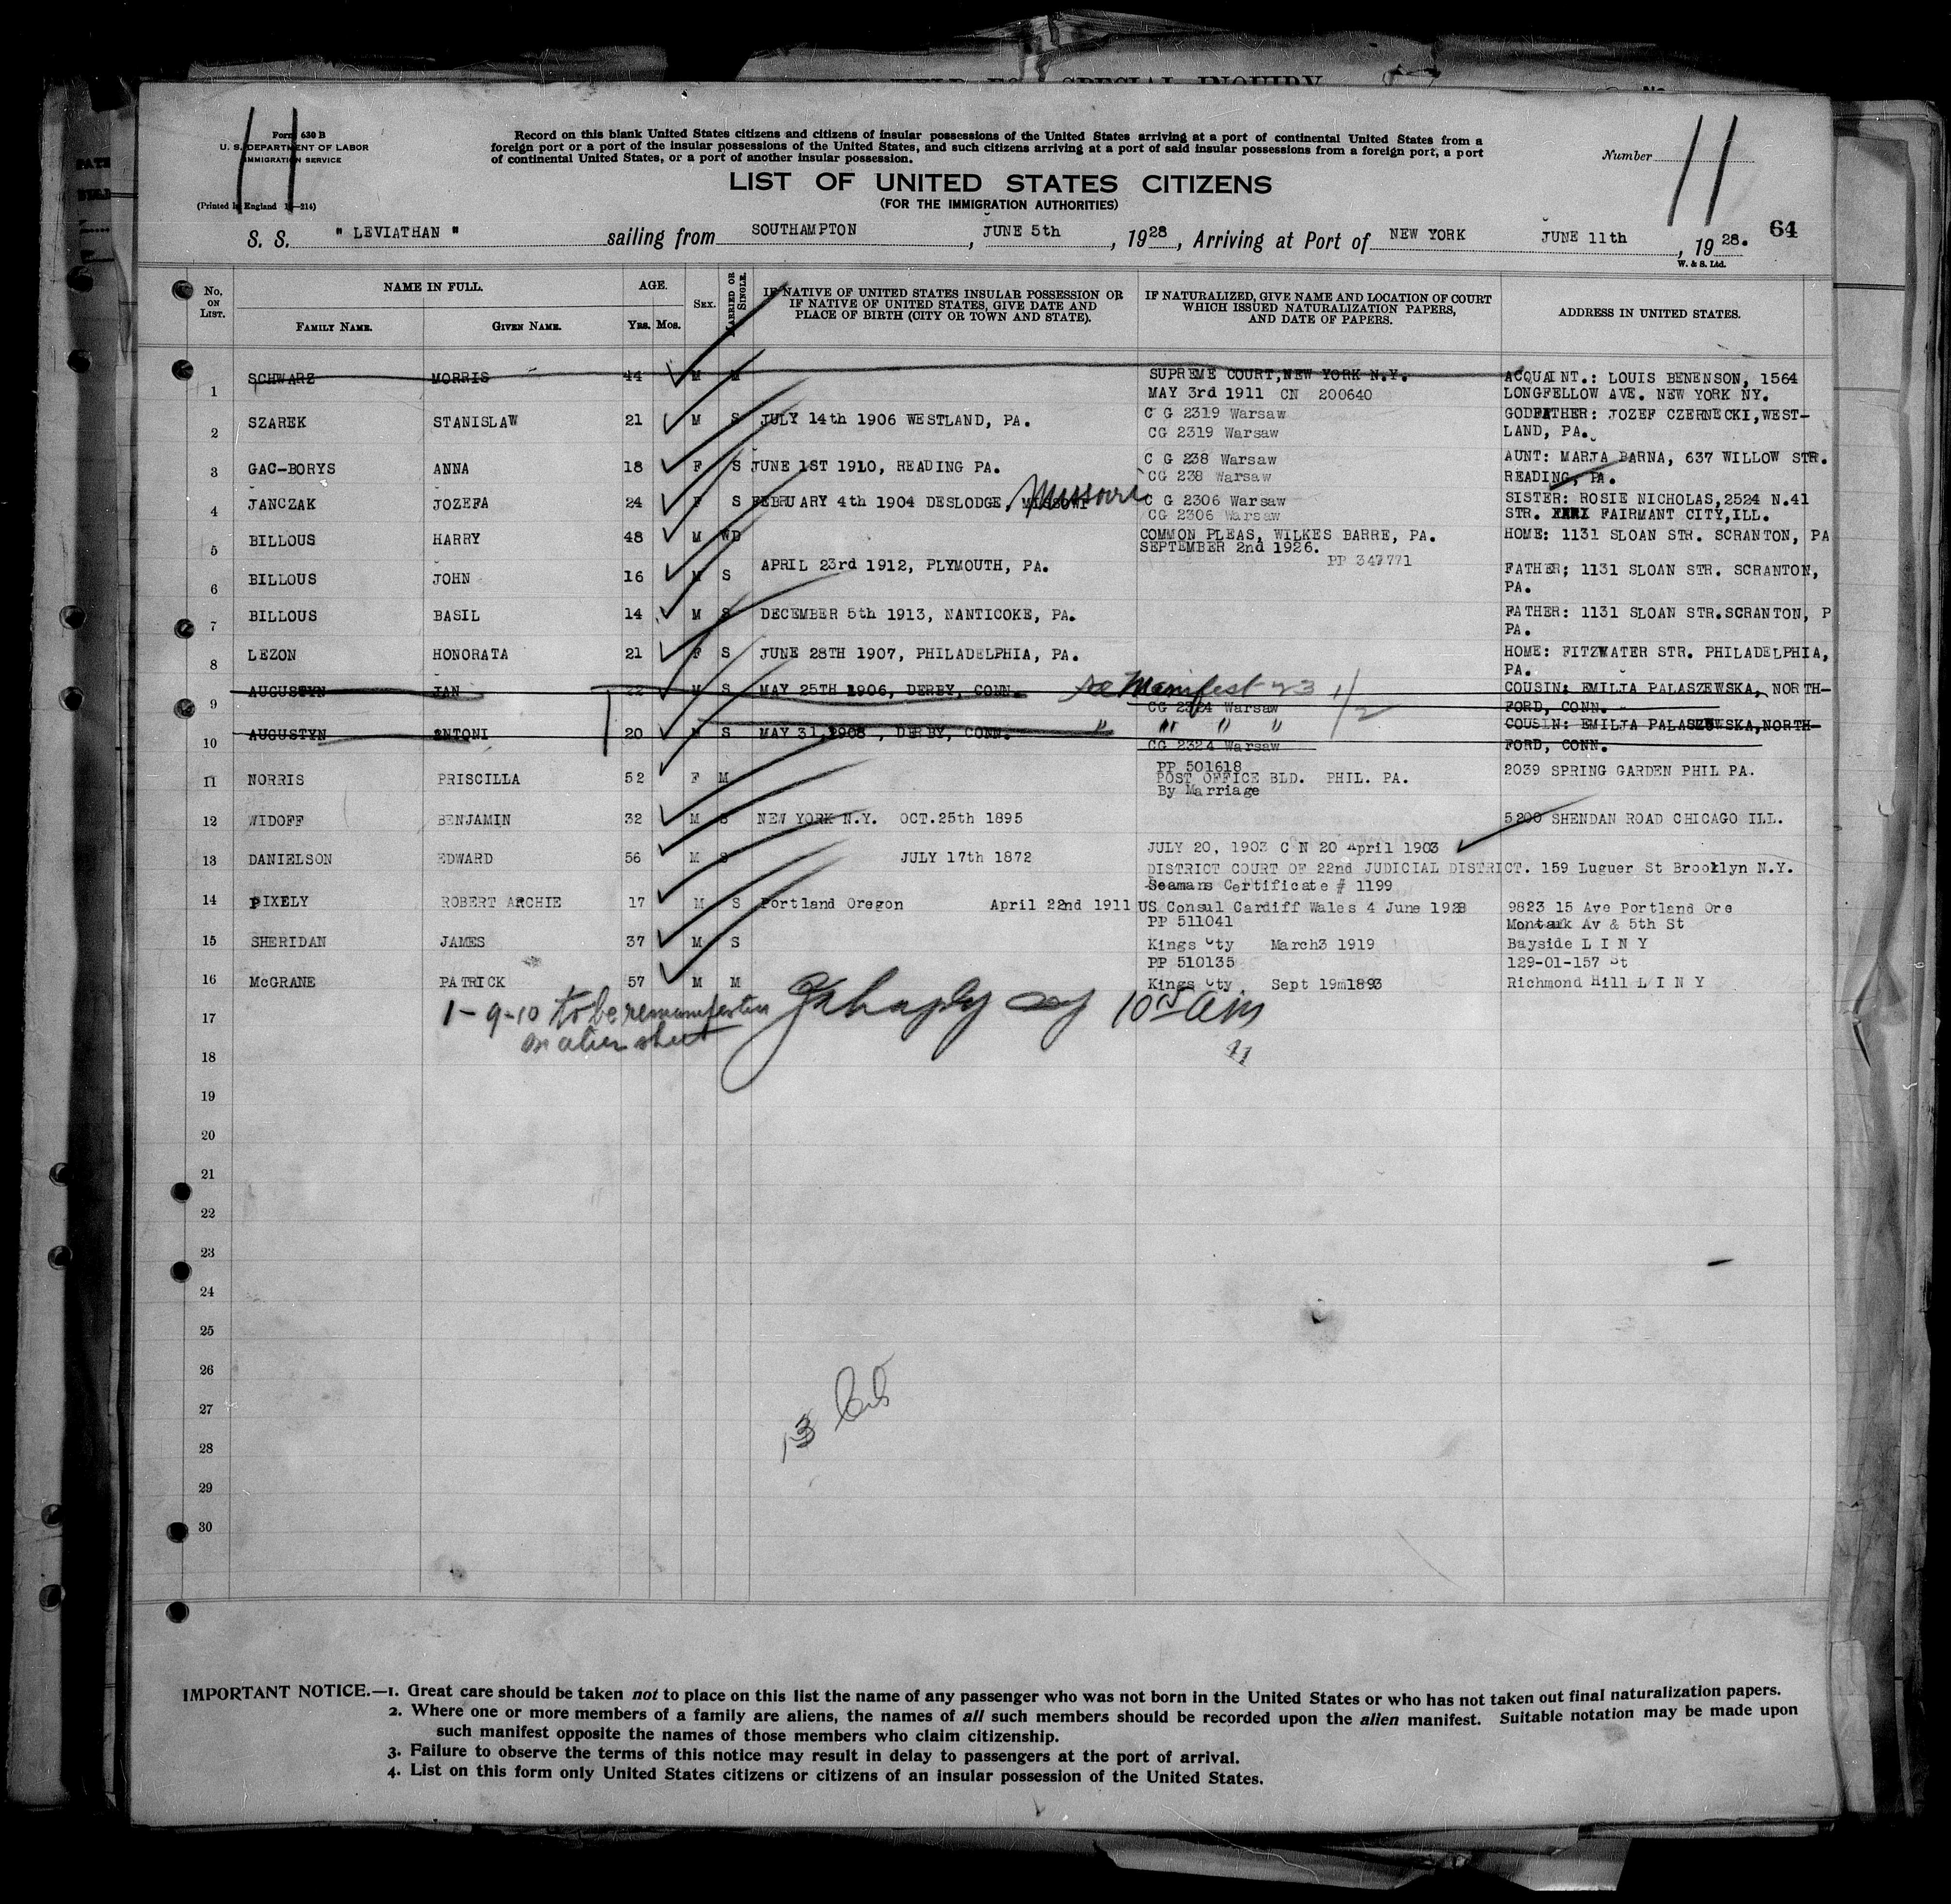 HELD FOR SPECIAL INQUIRY
No.
Form 630 B
U. S. DEPARTMENT OF LABOR
IMMIGRATION SERVICE
(Printed in England 1—214)
11
Record on this blank United States citizens and citizens of insular possessions of the United States arriving at a port of continental United States from a
foreign port or a port of the insular possessions of the United States, and such citizens arriving at a port of said insular possessions from a foreign port, a port
of continental United States, or a port of another insular possession.
Number
11
LIST OF UNITED STATES CITIZENS
(FOR THE IMMIGRATION AUTHORITIES)
64
S. S. " LEVIATHAN " sailing from SOUTHAMPTON, JUNE 5th, 1928, Arriving at Port of NEW YORK JUNE 11th, 1928.
W. & S. Ltd.
No. ON LIST. NAME IN FULL. AGE. SEX. MARRIED OR SINGLE. IF NATIVE OF UNITED STATES INSULAR POSSESSION OR IF NATIVE OF UNITED STATES, GIVE DATE AND PLACE OF BIRTH (CITY OR TOWN AND STATE). IF NATURALIZED, GIVE NAME AND LOCATION OF COURT WHICH ISSUED NATURALIZATION PAPERS, AND DATE OF PAPERS. ADDRESS IN UNITED STATES.
FAMILY NAME. GIVEN NAME. YRS. MOS.
1 SCHWARZ MORRIS 44 M M SUPREME COURT, NEW YORK N.Y. ACQUAINT.: LOUIS BENENSON, 1564
MAY 3rd 1911 CN 200640 LONGFELLOW AVE. NEW YORK NY.
2 SZAREK STANISLAW 21 M S JULY 14th 1906 WESTLAND, PA. C G 2319 Warsaw GODFATHER: JOZEF CZERNECKI, WEST-
CG 2319 Warsaw LAND, PA.
3 GAC-BORYS ANNA 18 F S JUNE 1ST 1910, READING PA. C G 238 Warsaw AUNT: MARJA BARNA, 637 WILLOW STR.
CG 238 Warsaw READING, PA.
4 JANCZAK JOZEFA 24 F S FEBRUARY 4th 1904 DESLODGE, MISSOWI Missouri C G 2306 Warsaw SISTER: ROSIE NICHOLAS, 2524 N.41
CG 2306 Warsaw STR. FAIRMANT CITY, ILL.
5 BILLOUS HARRY 48 M WD COMMON PLEAS, WILKES BARRE, PA. HOME: 1131 SLOAN STR. SCRANTON, PA
SEPTEMBER 2nd 1926.
PP 347771
6 BILLOUS JOHN 16 M S APRIL 23rd 1912, PLYMOUTH, PA. FATHER; 1131 SLOAN STR. SCRANTON,
PA.
7 BILLOUS BASIL 14 M S DECEMBER 5th 1913, NANTICOKE, PA. FATHER: 1131 SLOAN STR. SCRANTON, P
PA.
8 LEZON HONORATA 21 F S JUNE 28TH 1907, PHILADELPHIA, PA. HOME: FITZWATER STR. PHILADELPHIA,
PA.
9 AUGUSTYN JAN 22 M S MAY 25TH 1906, DERBY, CONN. see Manifest 23 1/2 COUSIN: EMILJA PALASZEWSKA, NORTH-
CG 2324 Warsaw FORD, CONN.
10 AUGUSTYN ANTONI 20 M S MAY 31, 1908, DERBY, CONN. " " " " COUSIN: EMILJA PALASZEWSKA, NORTH-
CG 2324 Warsaw FORD, CONN.
PP 501618
11 NORRIS PRISCILLA 52 F M POST OFFICE BLD. PHIL. PA. 2039 SPRING GARDEN PHIL PA.
By Marriage
12 WIDOFF BENJAMIN 32 M S NEW YORK N.Y. OCT.25th 1895 5200 SHENDAN ROAD CHICAGO ILL.
JULY 20, 1903 C N 20 April 1903
13 DANIELSON EDWARD 56 M S JULY 17th 1872 DISTRICT COURT OF 22nd JUDICIAL DISTRICT. 159 Luguer St Brooklyn N.Y.
Seamans Certificate # 1199
14 PIXELY ROBERT ARCHIE 17 M S Portland Oregon April 22nd 1911 US Consul Cardiff Wales 4 June 1928 9823 15 Ave Portland Ore
PP 511041 Montauk Av & 5th St
15 SHERIDAN JAMES 37 M S Kings Cty March3 1919 Bayside L I N Y
PP 510135 129-01-157 St
16 McGRANE PATRICK 57 M M Kings Cty Sept 19m1893 Richmond Hill L I N Y
1-9-10 to be remanifested
on alien sheet
10 am
17
18
19
20
21
22
23
24
25
26
27
28
29
30
13
IMPORTANT NOTICE.—1. Great care should be taken not to place on this list the name of any passenger who was not born in the United States or who has not taken out final naturalization papers.
2. Where one or more members of a family are aliens, the names of all such members should be recorded upon the alien manifest. Suitable notation may be made upon
such manifest opposite the names of those members who claim citizenship.
3. Failure to observe the terms of this notice may result in delay to passengers at the port of arrival.
4. List on this form only United States citizens or citizens of an insular possession of the United States.